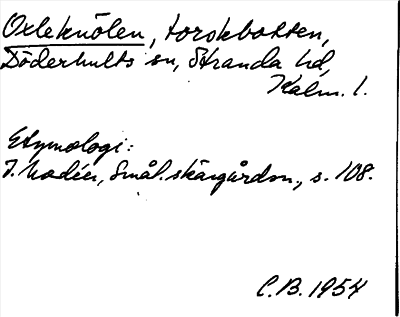 Oxleknölen, torskbotten,
Döderhults sn, Stranda hd,
Kalm. l.
Etymologi:
I. Modéer, Smål. skärgårdsn., s. 108.
C.B. 1954